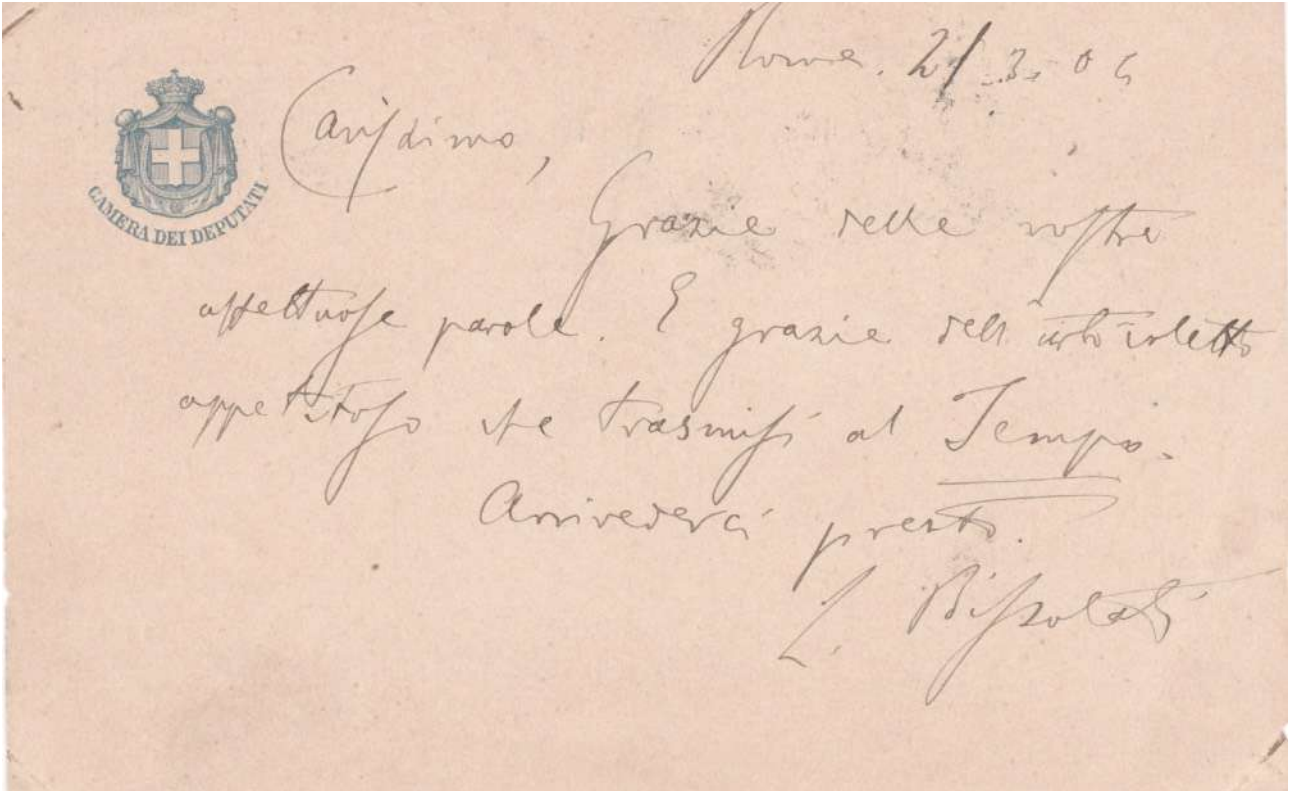 Roma. 21.3.06
CAMERA DEI DEPUTATI
Carissimo,
Grazie delle vostre
affettuose parole. E grazie dell'articoletto
appetitoso che trasmisi al Tempo.
Arrivederci presto.
L. Bissolati